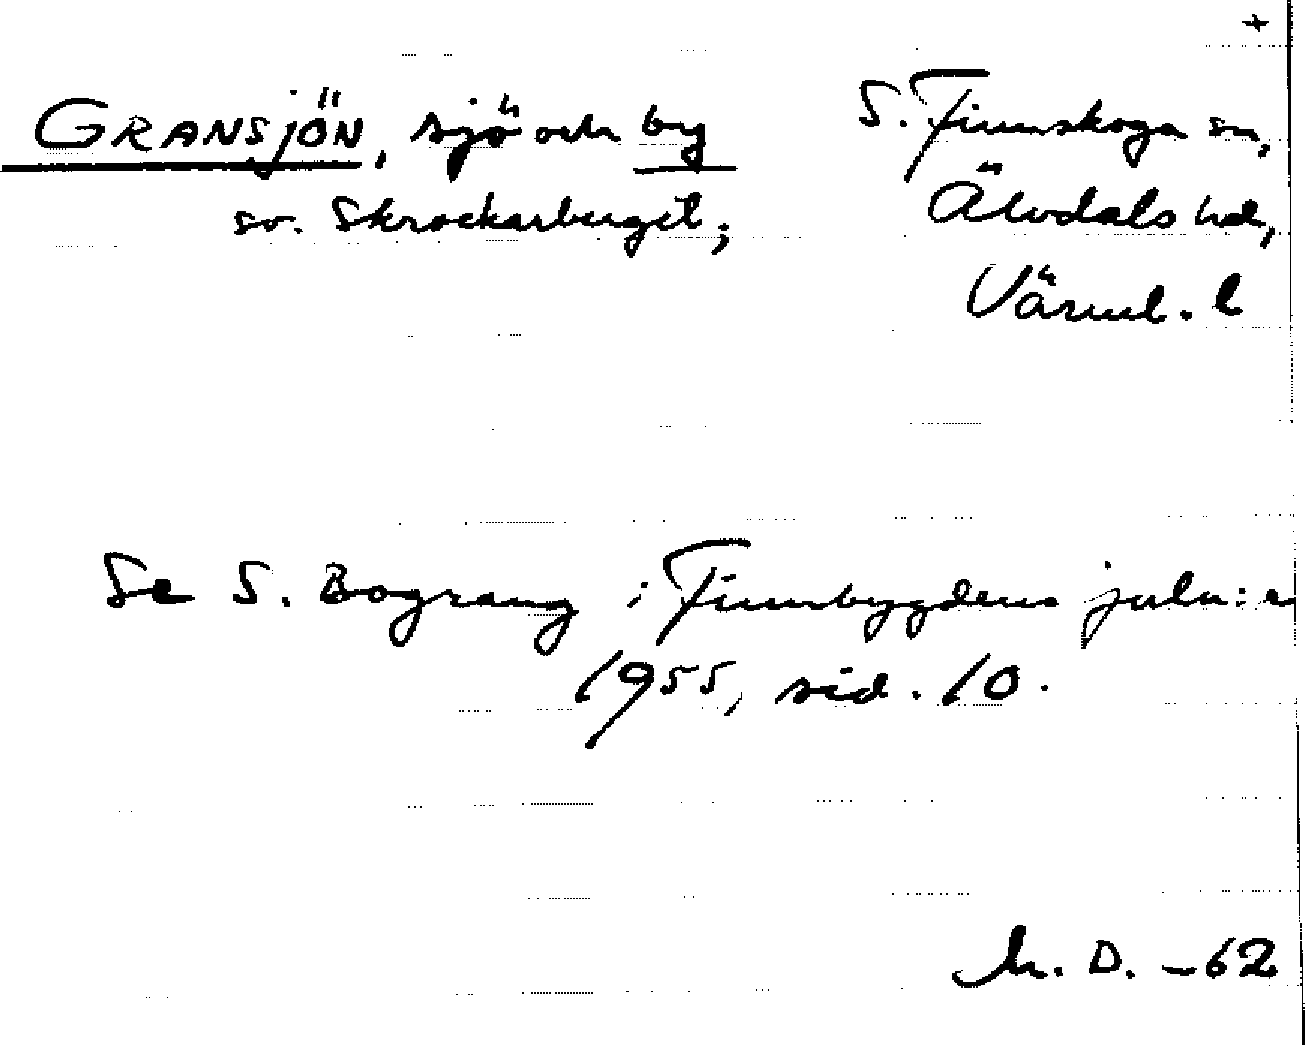 +
GRANSJÖN, sjö och by
sv. Skrockarberget;
S. Finnskoga sn,
Älvdals hd,
Värml. l
Se S. Bograng i Finnbygdens juln:r
1955, sid. 10.
M. D. -62